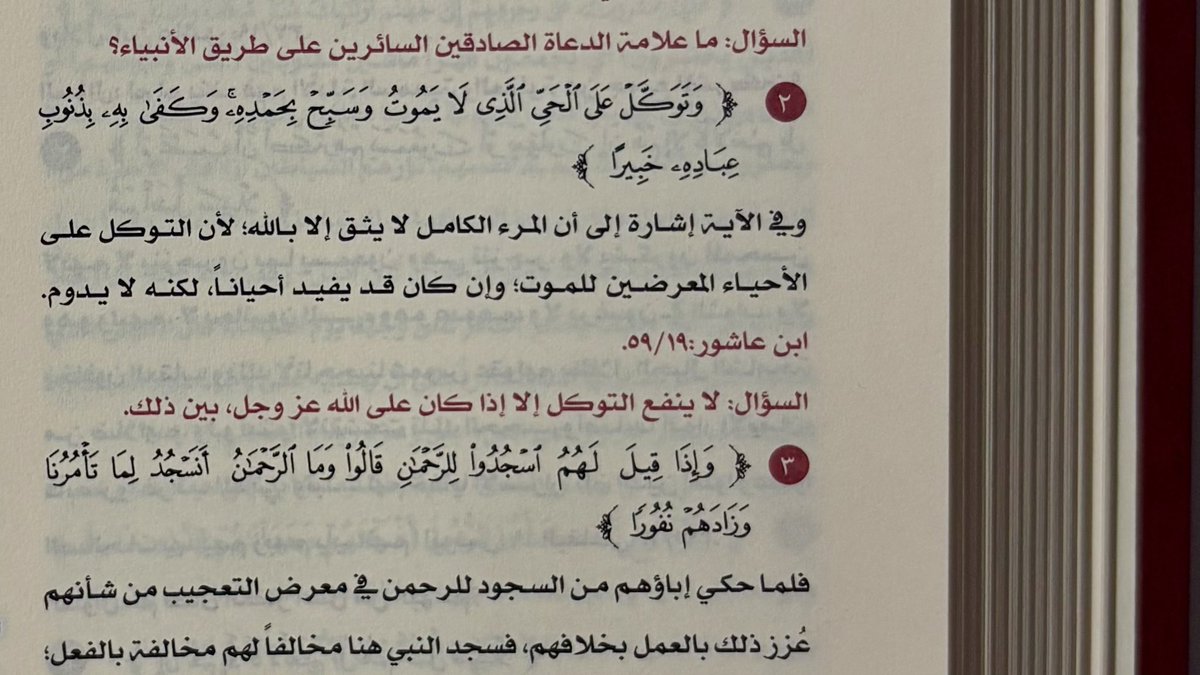 السؤال: ما علامة الدعاة الصادقين السائرين على طريق الأنبياء؟
٢ ﴿ وَتَوَكَّلْ عَلَى ٱلْحَىِّ ٱلَّذِى لَا يَمُوتُ وَسَبِّحْ بِحَمْدِهِۦ ۚ وَكَفَىٰ بِهِۦ بِذُنُوبِ
عِبَادِهِۦ خَبِيرًا ﴾
وفي الآية إشارة إلى أن المرء الكامل لا يثق إلا بالله؛ لأن التوكل على
الأحياء المعرضين للموت؛ وإن كان قد يفيد أحياناً، لكنه لا يدوم.
ابن عاشور:٥٩/١٩.
السؤال: لا ينفع التوكل إلا إذا كان على الله عز وجل، بين ذلك.
٣ ﴿ وَإِذَا قِيلَ لَهُمُ ٱسْجُدُوا۟ لِلرَّحْمَٰنِ قَالُوا۟ وَمَا ٱلرَّحْمَٰنُ أَنَسْجُدُ لِمَا تَأْمُرُنَا
وَزَادَهُمْ نُفُورًا ﴾
فلما حكي إباؤهم من السجود للرحمن في معرض التعجيب من شأنهم
عُزز ذلك بالعمل بخلافهم، فسجد النبي هنا مخالفاً لهم مخالفة بالفعل؛